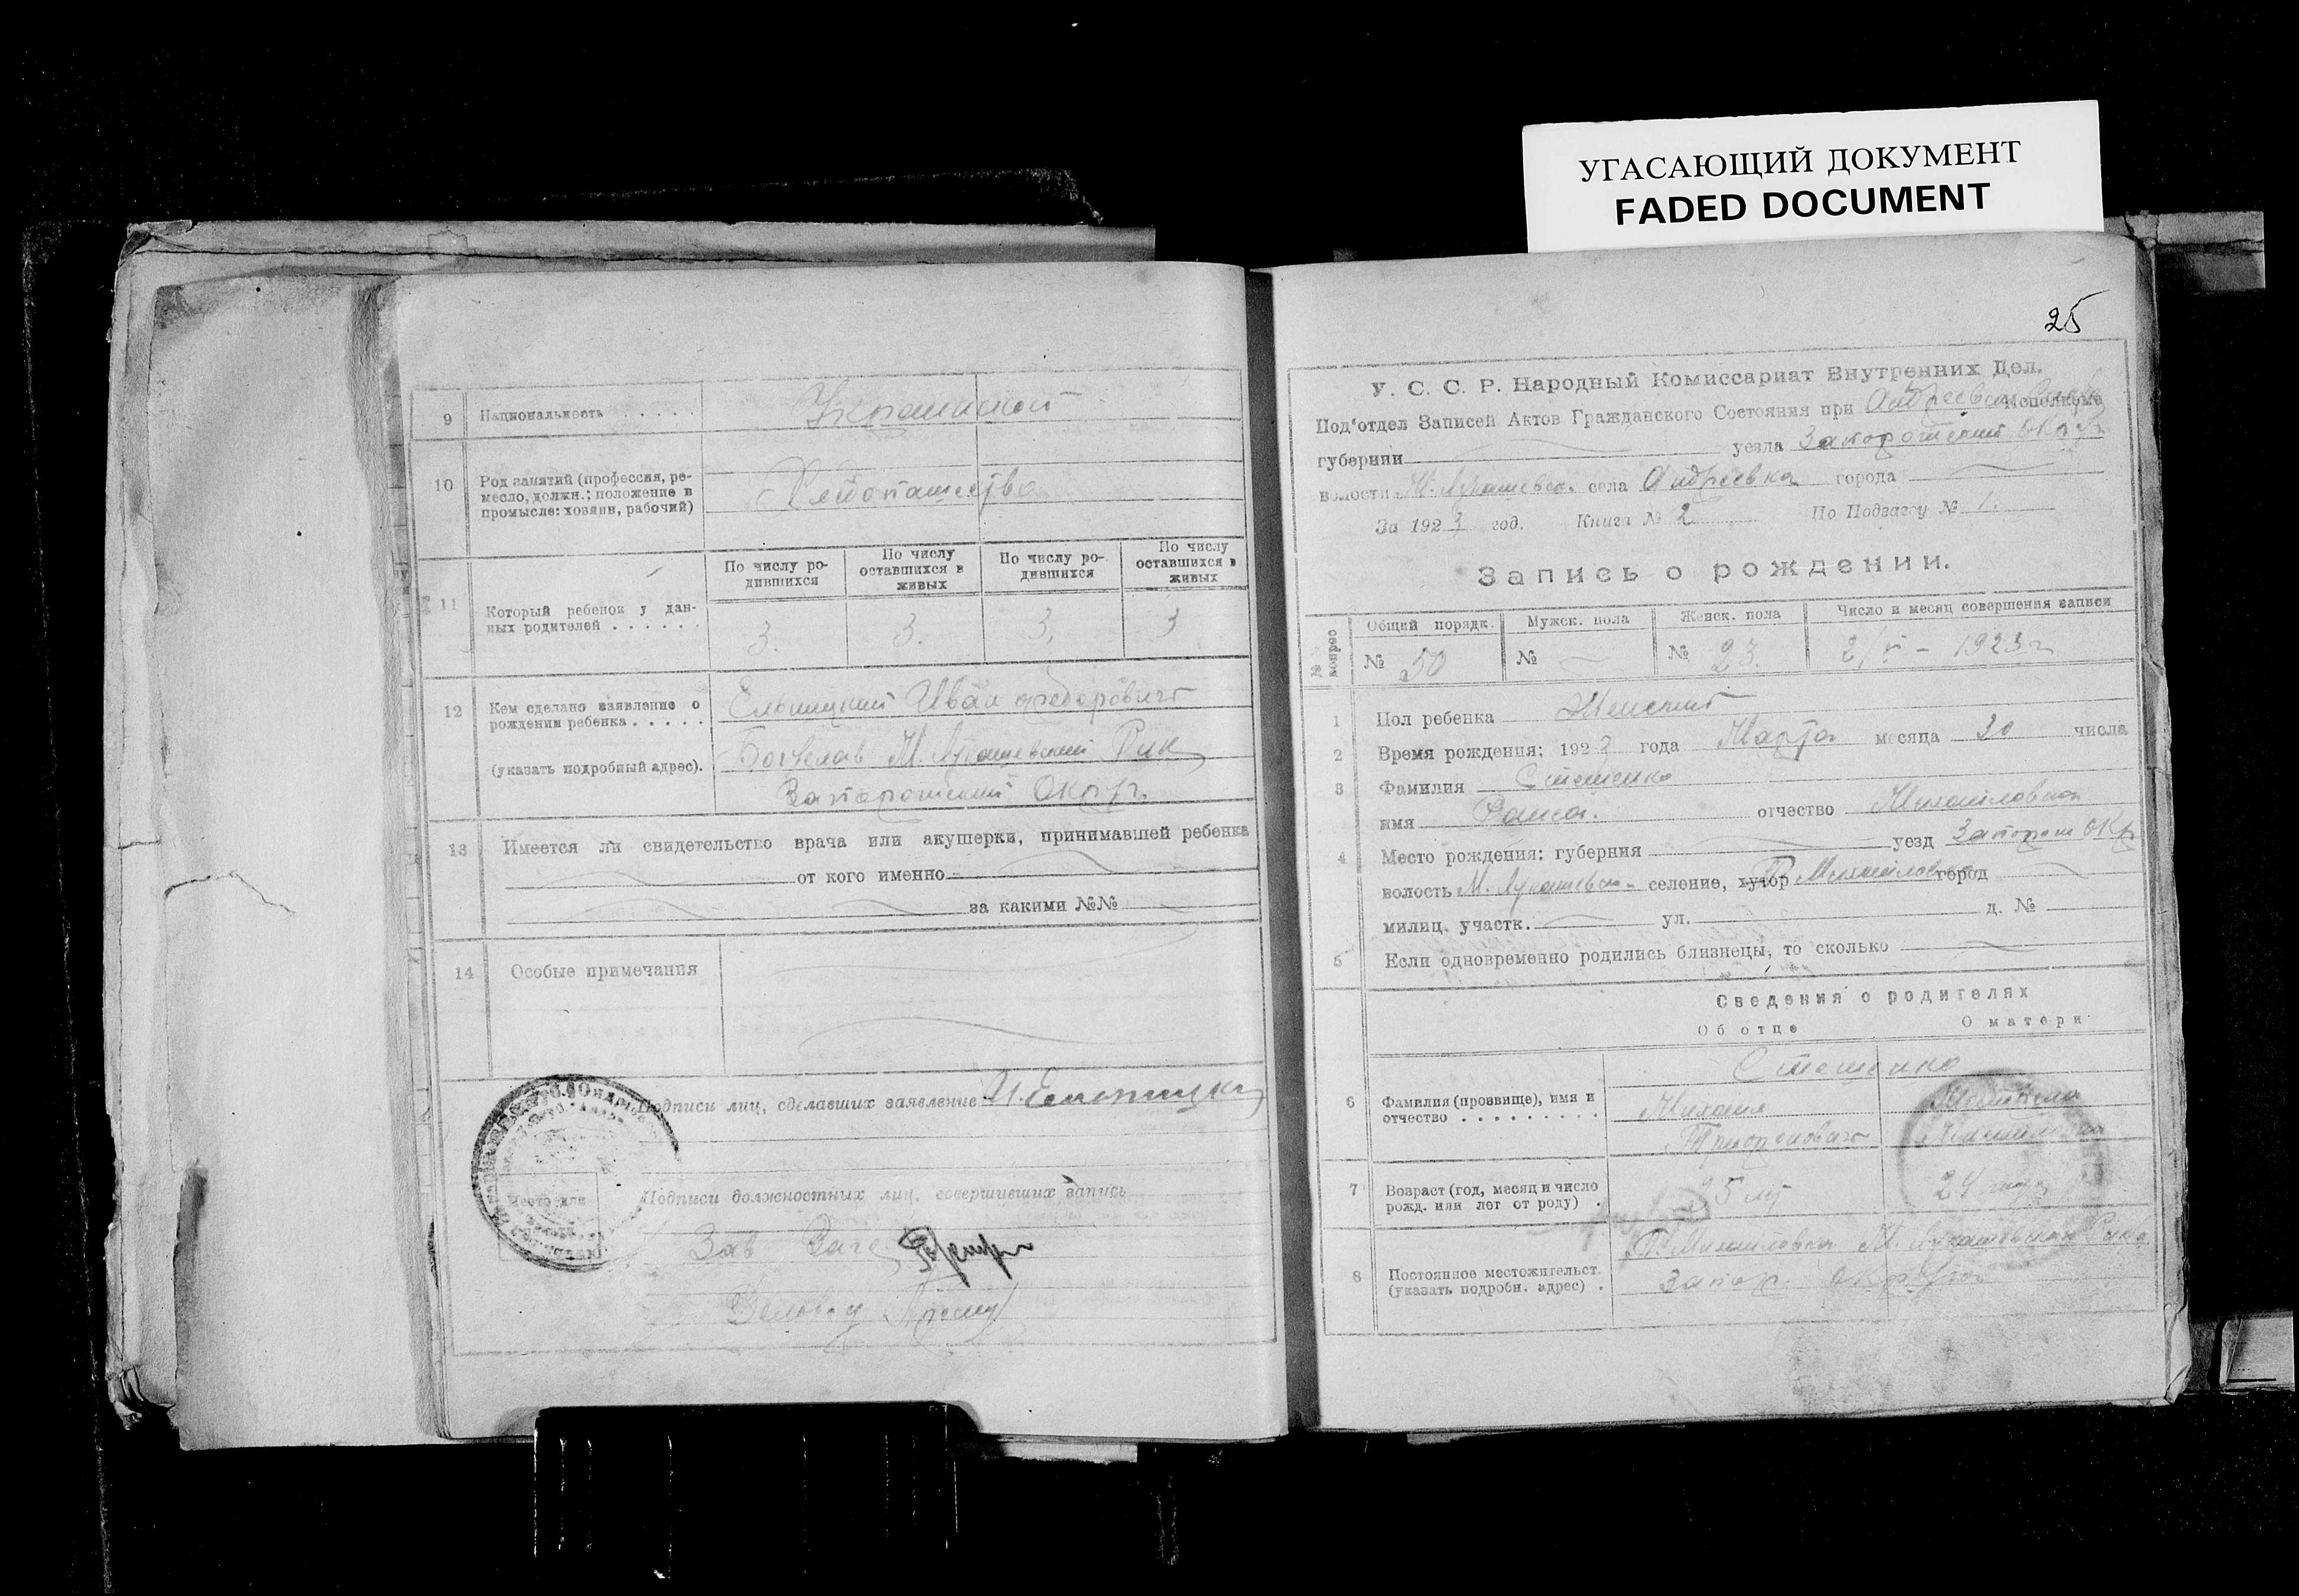 УГАСАЮЩИЙ ДОКУМЕНТ
FADED DOCUMENT
9 Национальность . . . . . .
10 Род занятий (профессия, ре-
месло, должн.; положение в
промысле: хозяин, рабочий)
Хлебопашество
11 Который ребенок у дан-
ных родителей . . . . . .
По числу ро-
дившихся
По числу
оставшихся в
живых
По числу ро-
дившихся
По числу
оставшихся в
живых
3. 3. 3. 3
12 Кем сделано заявление о
рождении ребенка . . . . .
(указать подробный адрес).
Ельницкий Иван Федорович
М. Лукашевский Рик
Запорожский Округ.
13 Имеется ли свидетельство врача или акушерки, принимавшей ребенка
от кого именно
за какими №№
14 Особые примечания
Подписи лиц, сделавших заявление
Место для
Подписи должностных лиц, совершивших запись
Зав Загс
25
У. С. С. Р. Народный Комиссариат Внутренних Дел.
Под'отдел Записей Актов Гражданского Состояния при Исполкоме
губернии уезда Запорожский Округ
волости М. Лукашевск. села Андреевка города
За 1923 год. Книга № 2 По Подзагсу № 1.
Запись о рождении.
№ вопрос
Общий порядк. Мужск. пола Женск. пола Число и месяц совершения записи
№ 50 № № 23. 2/V - 1923 г
1 Пол ребенка Женский
2 Время рождения: 1923 года Марта месяца 20 числа
3 Фамилия Стешенко
имя Раиса. отчество Михайловна
4 Место рождения: губерния уезд Запорож Окр
волость М. Лукашевск. селение, хутор Михайловка город
милиц. участк. ул. д. №
5 Если одновременно родились близнецы, то сколько
Сведения о родителях
Об отце О матери
6 Фамилия (прозвище), имя и
отчество . . . . . . . . . .
Стешенко
Михаил
7 Возраст (год, месяц и число
рожд. или лет от роду) .
25 лет 24 года
8 Постоянное местожительст.
(указать подробн. адрес) .
Михайловка М. Лукашевского Рика
Запор. округа